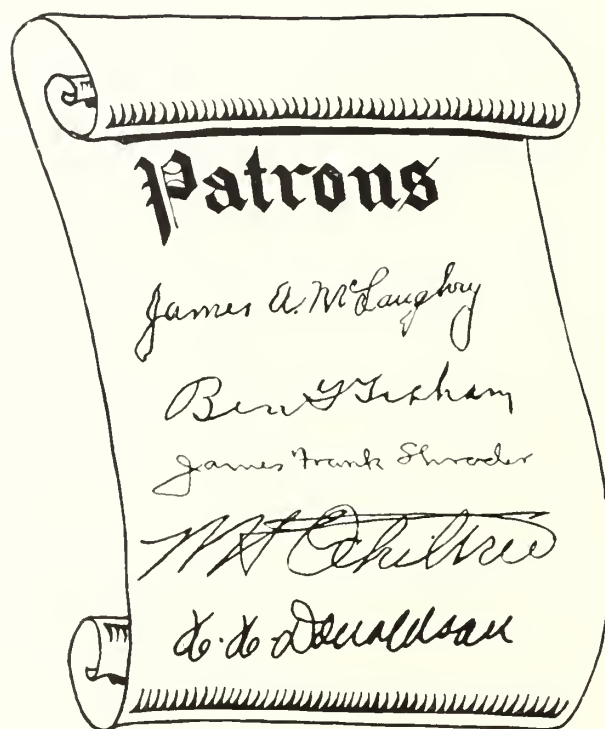 Patrons
James A. McLaughry
Ben G Graham
James Frank Shrader
W H Ochiltree
Donaldson